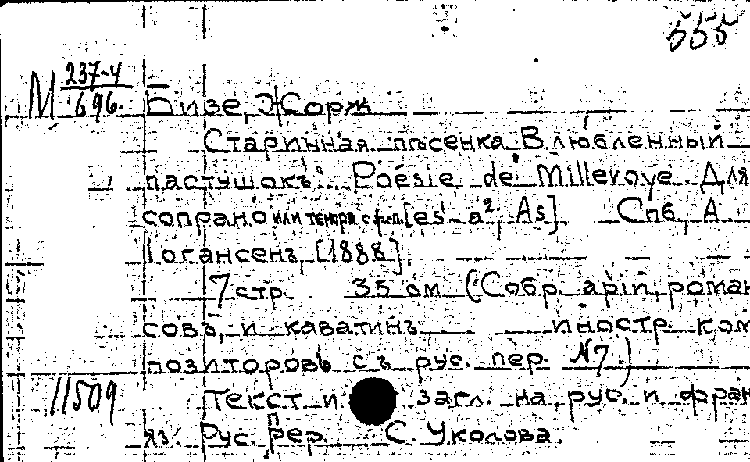 555
М 237-4/696.
Бизе, Жорж
Старинная пѣсенка "Влюбленный
пастушокъ". Poésie de Millevoye. Для
сопрано или тенора с ф.п. [es¹-a², As]. Спб, А
Іогансенъ [1888].
7 стр. 35 см (Собр. арiй, роман
совъ, и каватинъ иностр. ком
позиторовъ съ рус. пер. №7.)
11509
Текст и загл. на рус. и фран
яз. Рус. пер. С. Уколова.